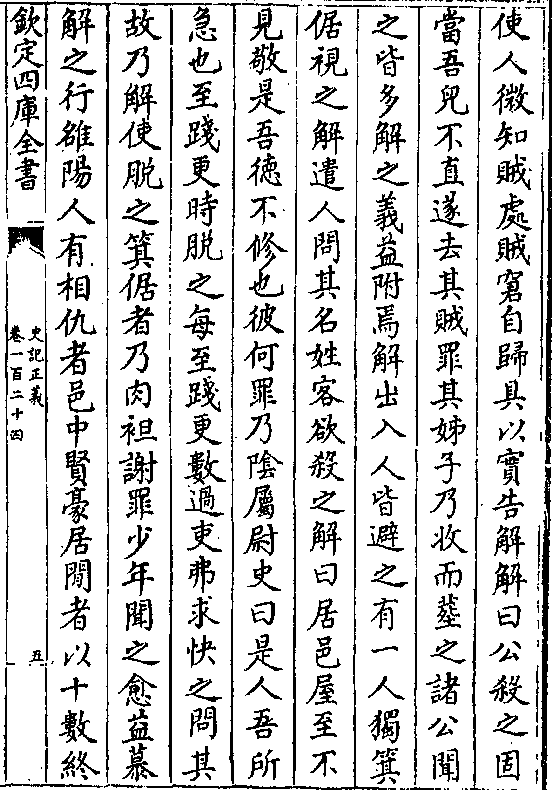 使人微知賊處賊窘自歸具以實告解解曰公殺之固
當吾兒不直遂去其賊罪其姊子乃收而塟之諸公聞
之皆多解之義益附焉解出入人皆避之有一人獨箕
倨視之解遣人問其名姓客欲殺之解曰居邑屋至不
見敬是吾德不修也彼何罪乃陰屬尉史曰是人吾所
急也至踐更時脱之每至踐更數過吏弗求怏之問其
故乃解使脱之箕倨者乃肉袒謝罪少年聞之愈益慕
解之行雒陽人有相仇者邑中賢豪居閒者以十數終
欽定四庫全書
史記正義
卷一百二十四
五